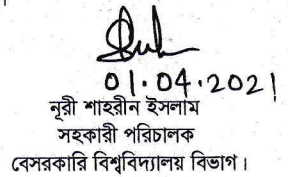 01.04.2021
নূরী শাহরীন ইসলাম
সহকারী পরিচালক
বেসরকারি বিশ্ববিদ্যালয় বিভাগ।